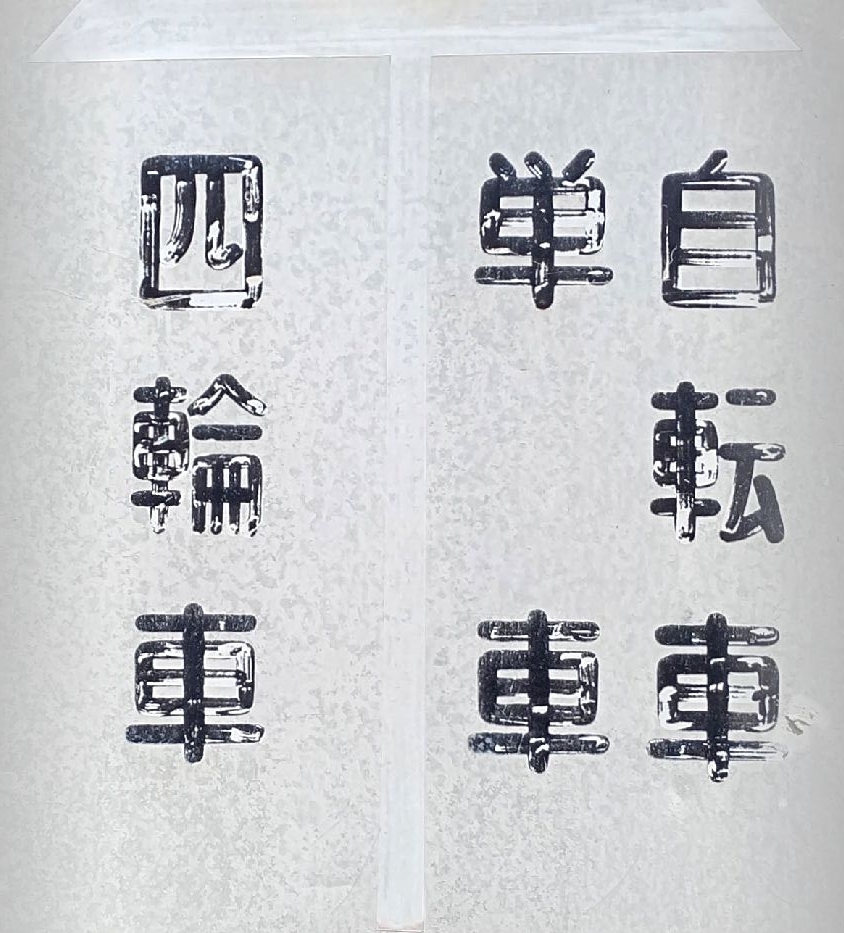 自転車
単車
四輪車